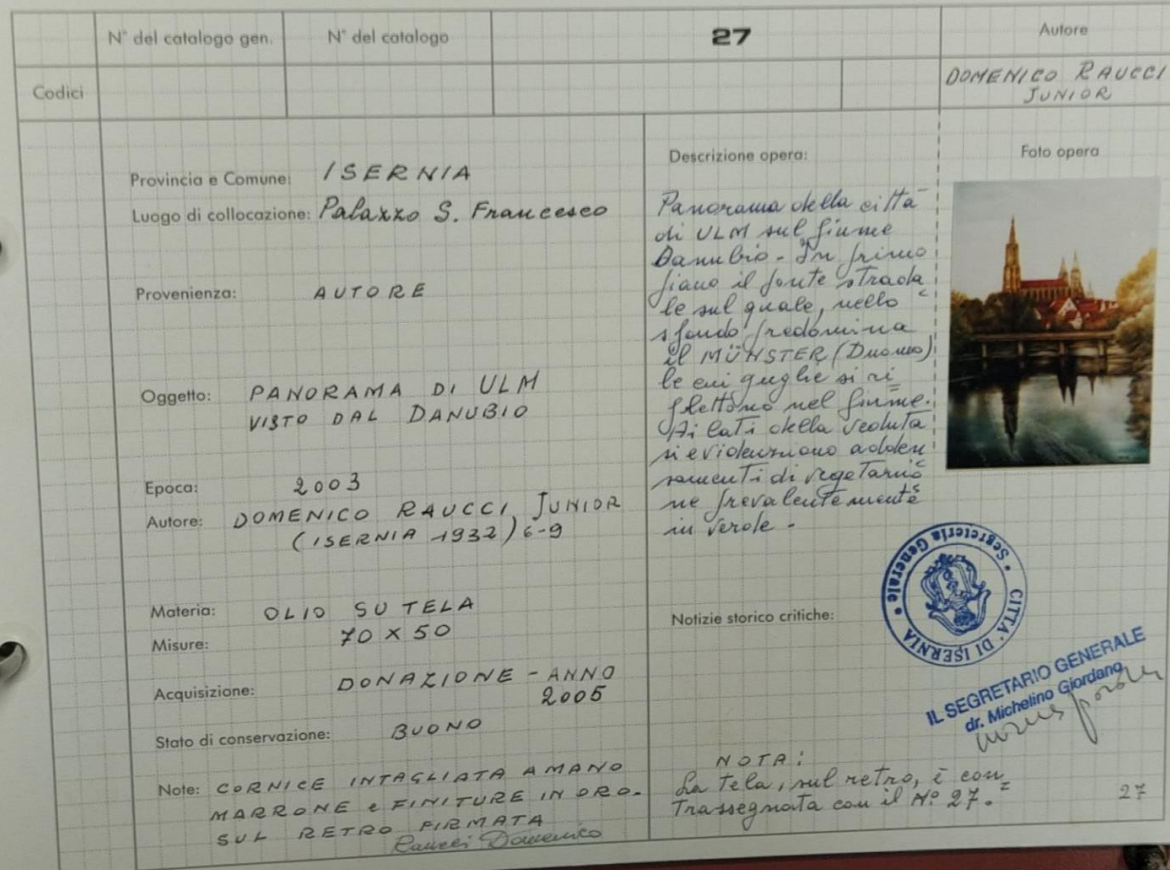 N° del catalogo gen.
N° del catalogo
27
Autore
Codici
DOMENICO RAUCCI
JUNIOR
Provincia e Comune: ISERNIA
Luogo di collocazione: Palazzo S. Francesco
Provenienza: AUTORE
Oggetto: PANORAMA DI ULM
VISTO DAL DANUBIO
Epoca: 2003
Autore: DOMENICO RAUCCI JUNIOR
(ISERNIA 1932) 6-9
Materia: OLIO SU TELA
Misure: 70 X 50
Acquisizione: DONAZIONE - ANNO
2005
Stato di conservazione: BUONO
Note: CORNICE INTAGLIATA A MANO
MARRONE e FINITURE IN ORO.
SUL RETRO FIRMATA
Raucci Domenico
Descrizione opera:
Panorama della città
di ULM sul fiume
Danubio - In primo
piano il ponte strada
le sul quale, nello
sfondo predomina
il MÜNSTER (Duomo)
le cui guglie si ri=
flettono nel fiume.
Ai lati della veduta
si evidenziano adden
samenti di vegetazio
ne prevalentemente
in verole.
Foto opera
Notizie storico critiche:
• Segreteria Generale •
CITTA' DI ISERNIA
IL SEGRETARIO GENERALE
dr. Michelino Giordano
NOTA:
La tela, sul retro, è con=
trassegnata con il N° 27.
27